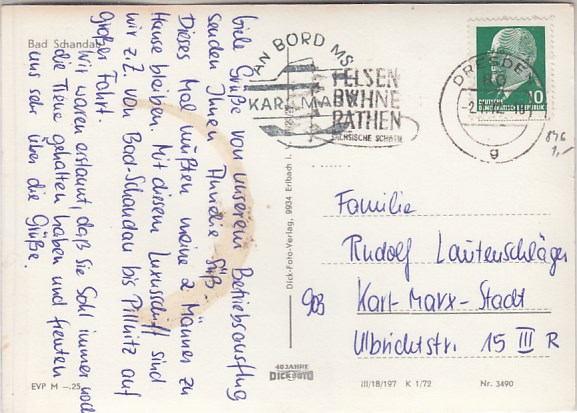 Bad Schandau
Viele Grüße von unserem Betriebsausflug
senden Ihnen Annelie Süß.
Dieses Mal mußten meine 2 Männer zu
Hause bleiben. Mit diesem Luxusschiff sind
wir z.Z. von Bad-Schandau bis Pillnitz auf
großer Fahrt.
Wir waren erstaunt, daß Sie Sohl immer noch
die Treue gehalten haben und freuten
uns sehr über die Grüße.
EVP M –.25
Dick-Foto-Verlag, 9934 Erlbach i. V.
AN BORD MS
KARL MARX
FELSEN
BÜHNE
RATHEN
SÄCHSISCHE SCHWEIZ
DRESDEN
g
10
DEUTSCHE
DEMOKRATISCHE REPUBLIK
846
1,-
Familie
Rudolf Lautenschläger
903 Karl-Marx-Stadt
Ulbrichtstr. 15 III R
40 JAHRE
DICK-FOTO
III/18/197 K 1/72
Nr. 3490